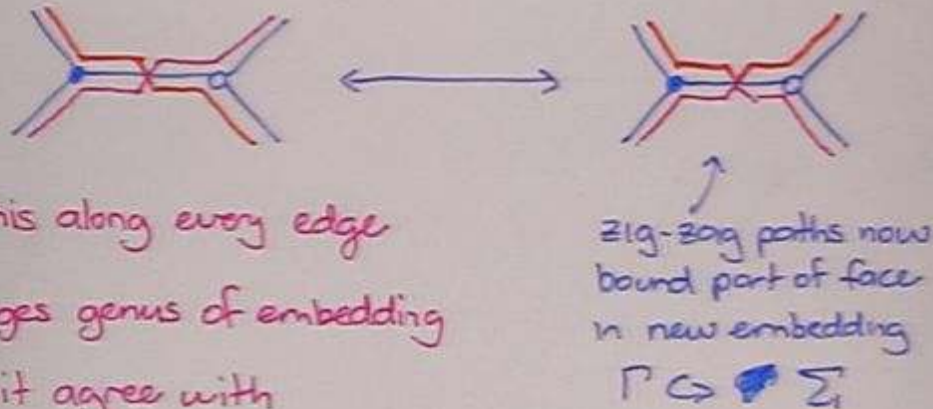 his along every edge
ges genus of embedding
it agree with
zig-zag paths now
bound part of face
in new embedding
Γ ↪ Σ₁